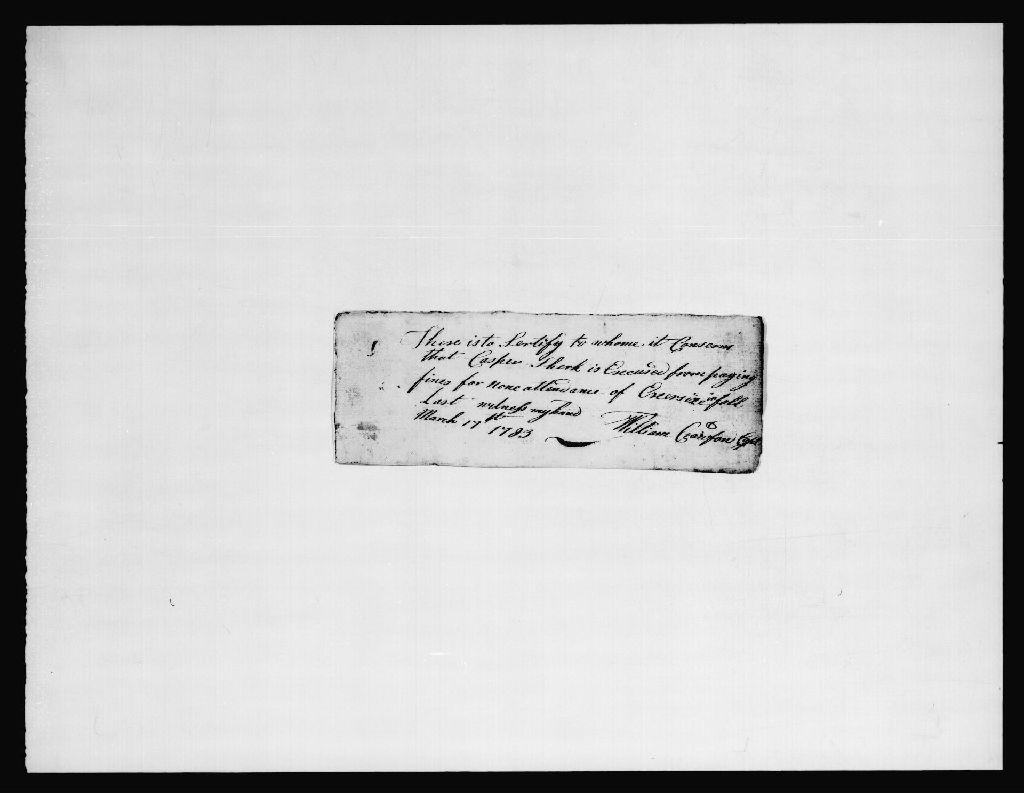 These is to Sertify to whome it Consern
that Casper Sherk is Excused from paying
fines for none attendance of Exersize in fall
Last witness my hand William Crawford Capt
March 17th 1783